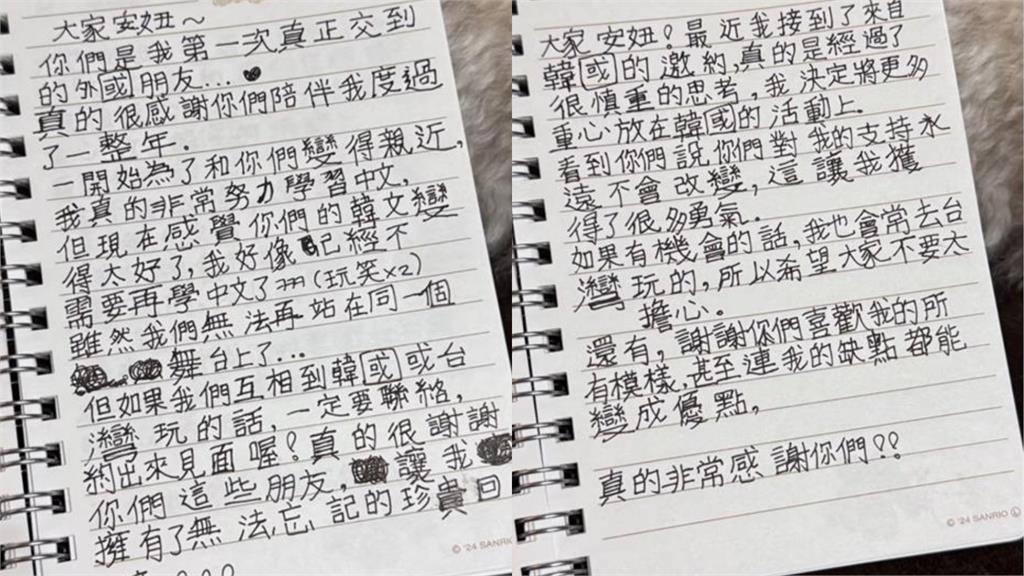 大家安妞~
你們是我第一次真正交到
的外國朋友...
真的很感謝你們陪伴我度過
了一整年.
一開始為了和你們變得親近,
我真的非常努力學習中文,
但現在感覺你們的韓文變
得太好了,我好像已經不
需要再學中文了ㅋㅋ(玩笑x2)
雖然我們無法再站在同一個
舞台上了...
但如果我們互相到韓國或台
灣玩的話,一定要聯絡,
約出來見面喔!真的很謝謝
你們這些朋友,讓我
擁有了無法忘記的珍貴回
© '24 SANRIO
大家安妞!最近我接到了來自
韓國的邀約,真的是經過了
很慎重的思考,我決定將更多
重心放在韓國的活動上.
看到你們說你們對我的支持永
遠不會改變,這讓我獲
得了很多勇氣.
如果有機會的話,我也會常去台
灣玩的,所以希望大家不要太
擔心。
還有,謝謝你們喜歡我的所
有模樣,甚至連我的缺點都能
變成優點,
真的非常感謝你們!!
© '24 SANRIO Ⓛ